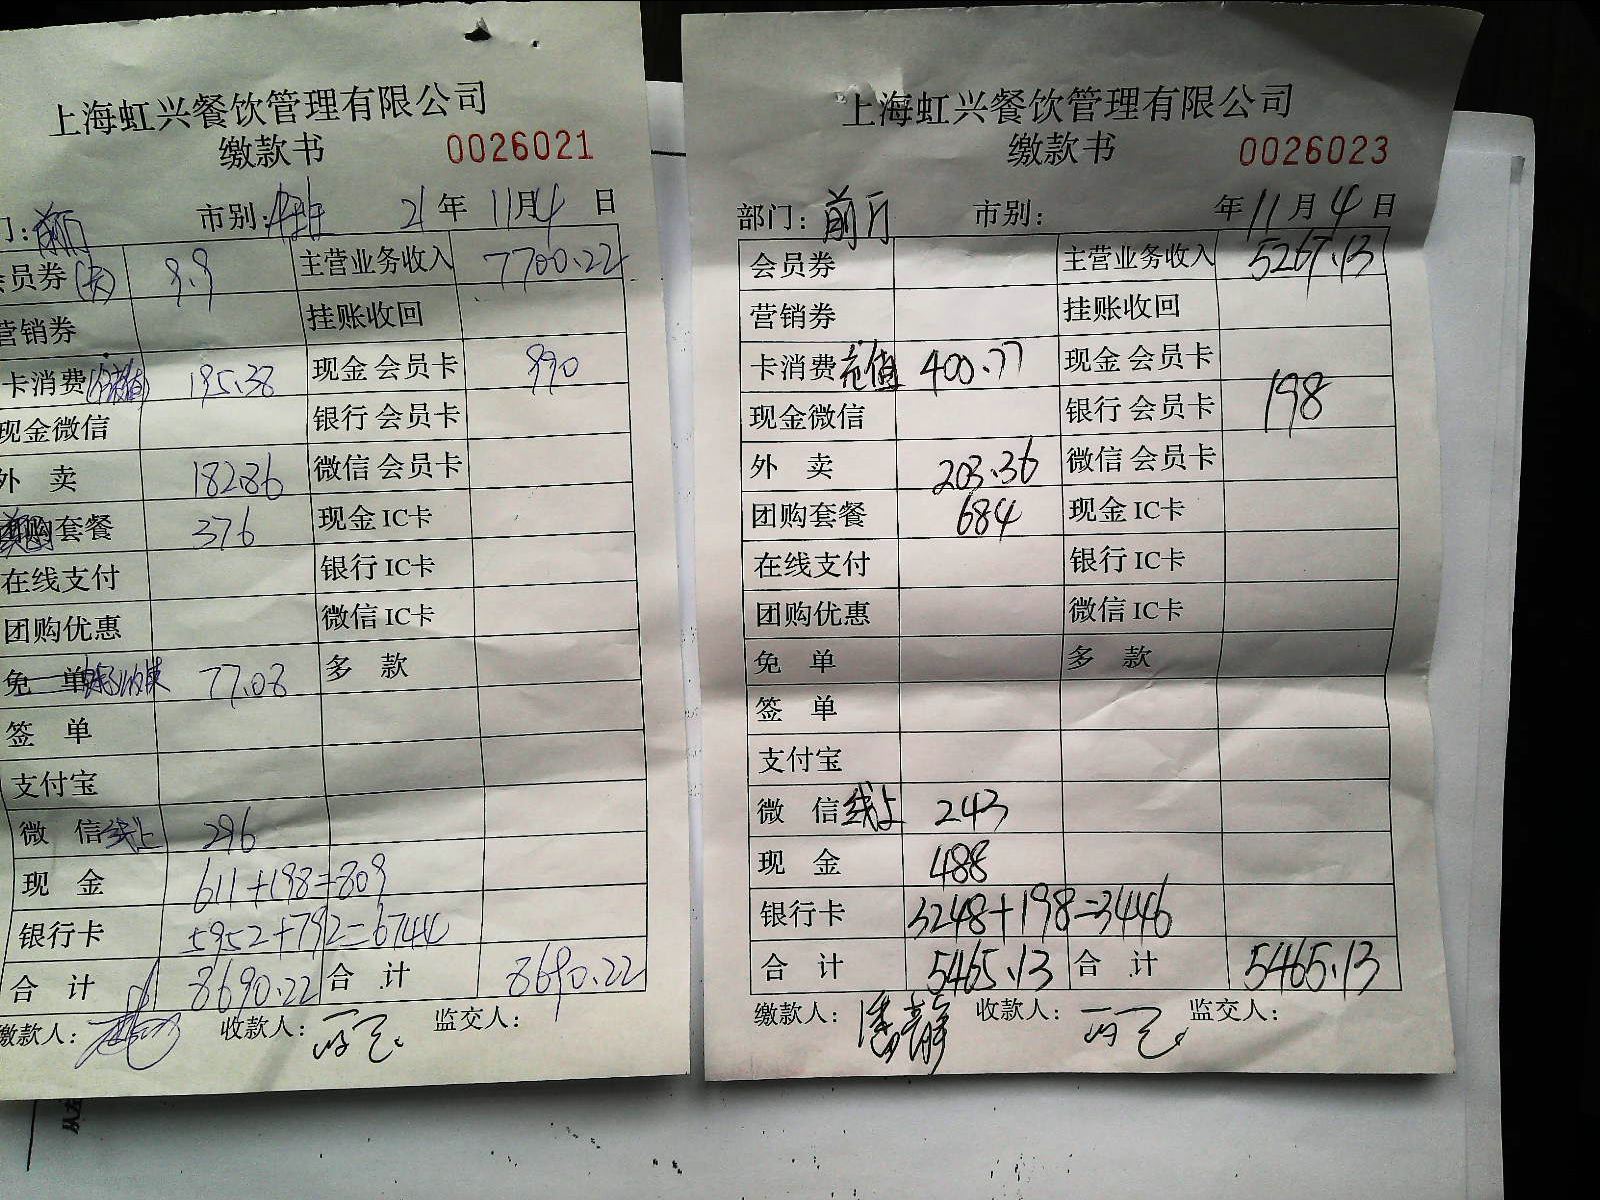 上海虹兴餐饮管理有限公司
缴款书 0026021
门: 前厅 市别: 中班 21年 11月4日
会员券 9.9 主营业务收入 7700.22
营销券 挂账收回
卡消费 195.38 现金 会员卡 990
现金微信 银行 会员卡
外 卖 182.86 微信 会员卡
购套餐 376 现金 IC卡
在线支付 银行 IC卡
团购优惠 微信 IC卡
免 单 77.08 多 款
签 单
支付宝
微 信 线上 296
现 金 611+198=809
银行卡 5952+792=6744
合 计 8690.22 合 计 8690.22
缴款人: 收款人: 监交人:
上海虹兴餐饮管理有限公司
缴款书 0026023
部门: 前厅 市别: 年 11月 4日
会员券 主营业务收入 5267.13
营销券 挂账收回
卡消费 充值 400.77 现金 会员卡
现金微信 银行 会员卡 198
外 卖 203.36 微信 会员卡
团购套餐 684 现金 IC卡
在线支付 银行 IC卡
团购优惠 微信 IC卡
免 单 多 款
签 单
支付宝
微 信 线上 243
现 金 488
银行卡 3248+198=3446
合 计 5465.13 合 计 5465.13
缴款人: 潘静 收款人: 监交人: